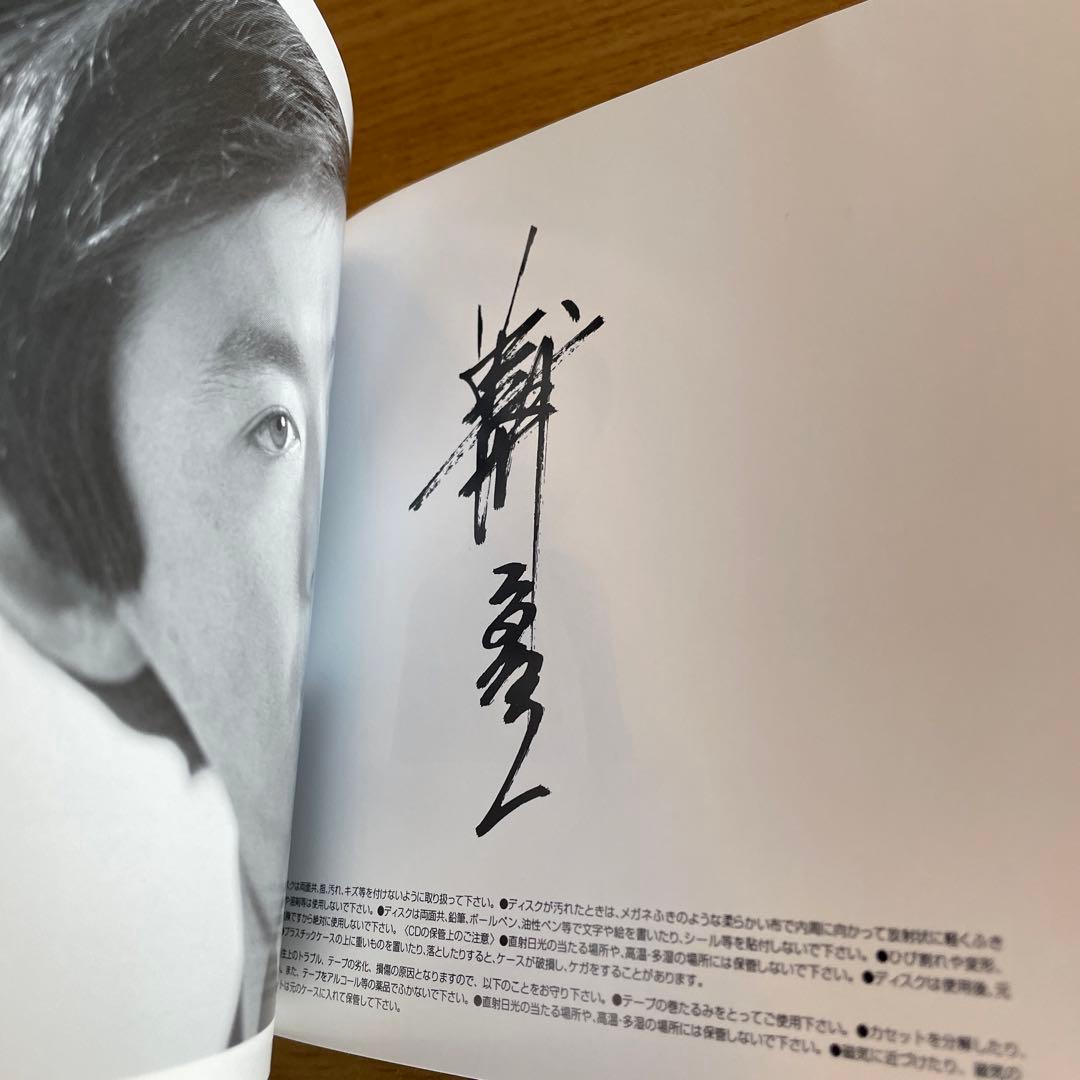 スクは両面共、指、汚れ、キズ等を付けないように取り扱って下さい。●ディスクが汚れたときは、メガネふきのような柔らかい布で内周に向かって放射状に軽くふき
や溶剤等は使用しないで下さい。●ディスクは両面共、鉛筆、ボールペン、油性ペン等で文字や絵を書いたり、シール等を貼付しないで下さい。●ひび割れや変形、
険ですから絶対に使用しないで下さい。〈CDの保管上のご注意〉●直射日光の当たる場所や、高温・多湿の場所には保管しないで下さい。●ディスクは使用後、元
プラスチックケースの上に重いものを置いたり、落としたりすると、ケースが破損し、ケガをすることがあります。
生上のトラブル、テープの劣化、損傷の原因となりますので、以下のことをお守り下さい。●テープの巻たるみをとってご使用下さい。●カセットを分解したり、
。また、テープをアルコール等の薬品でふかないで下さい。●直射日光の当たる場所や、高温・多湿の場所には保管しないで下さい。●磁気に近づけたり、磁気の
トは元のケースに入れて保管して下さい。